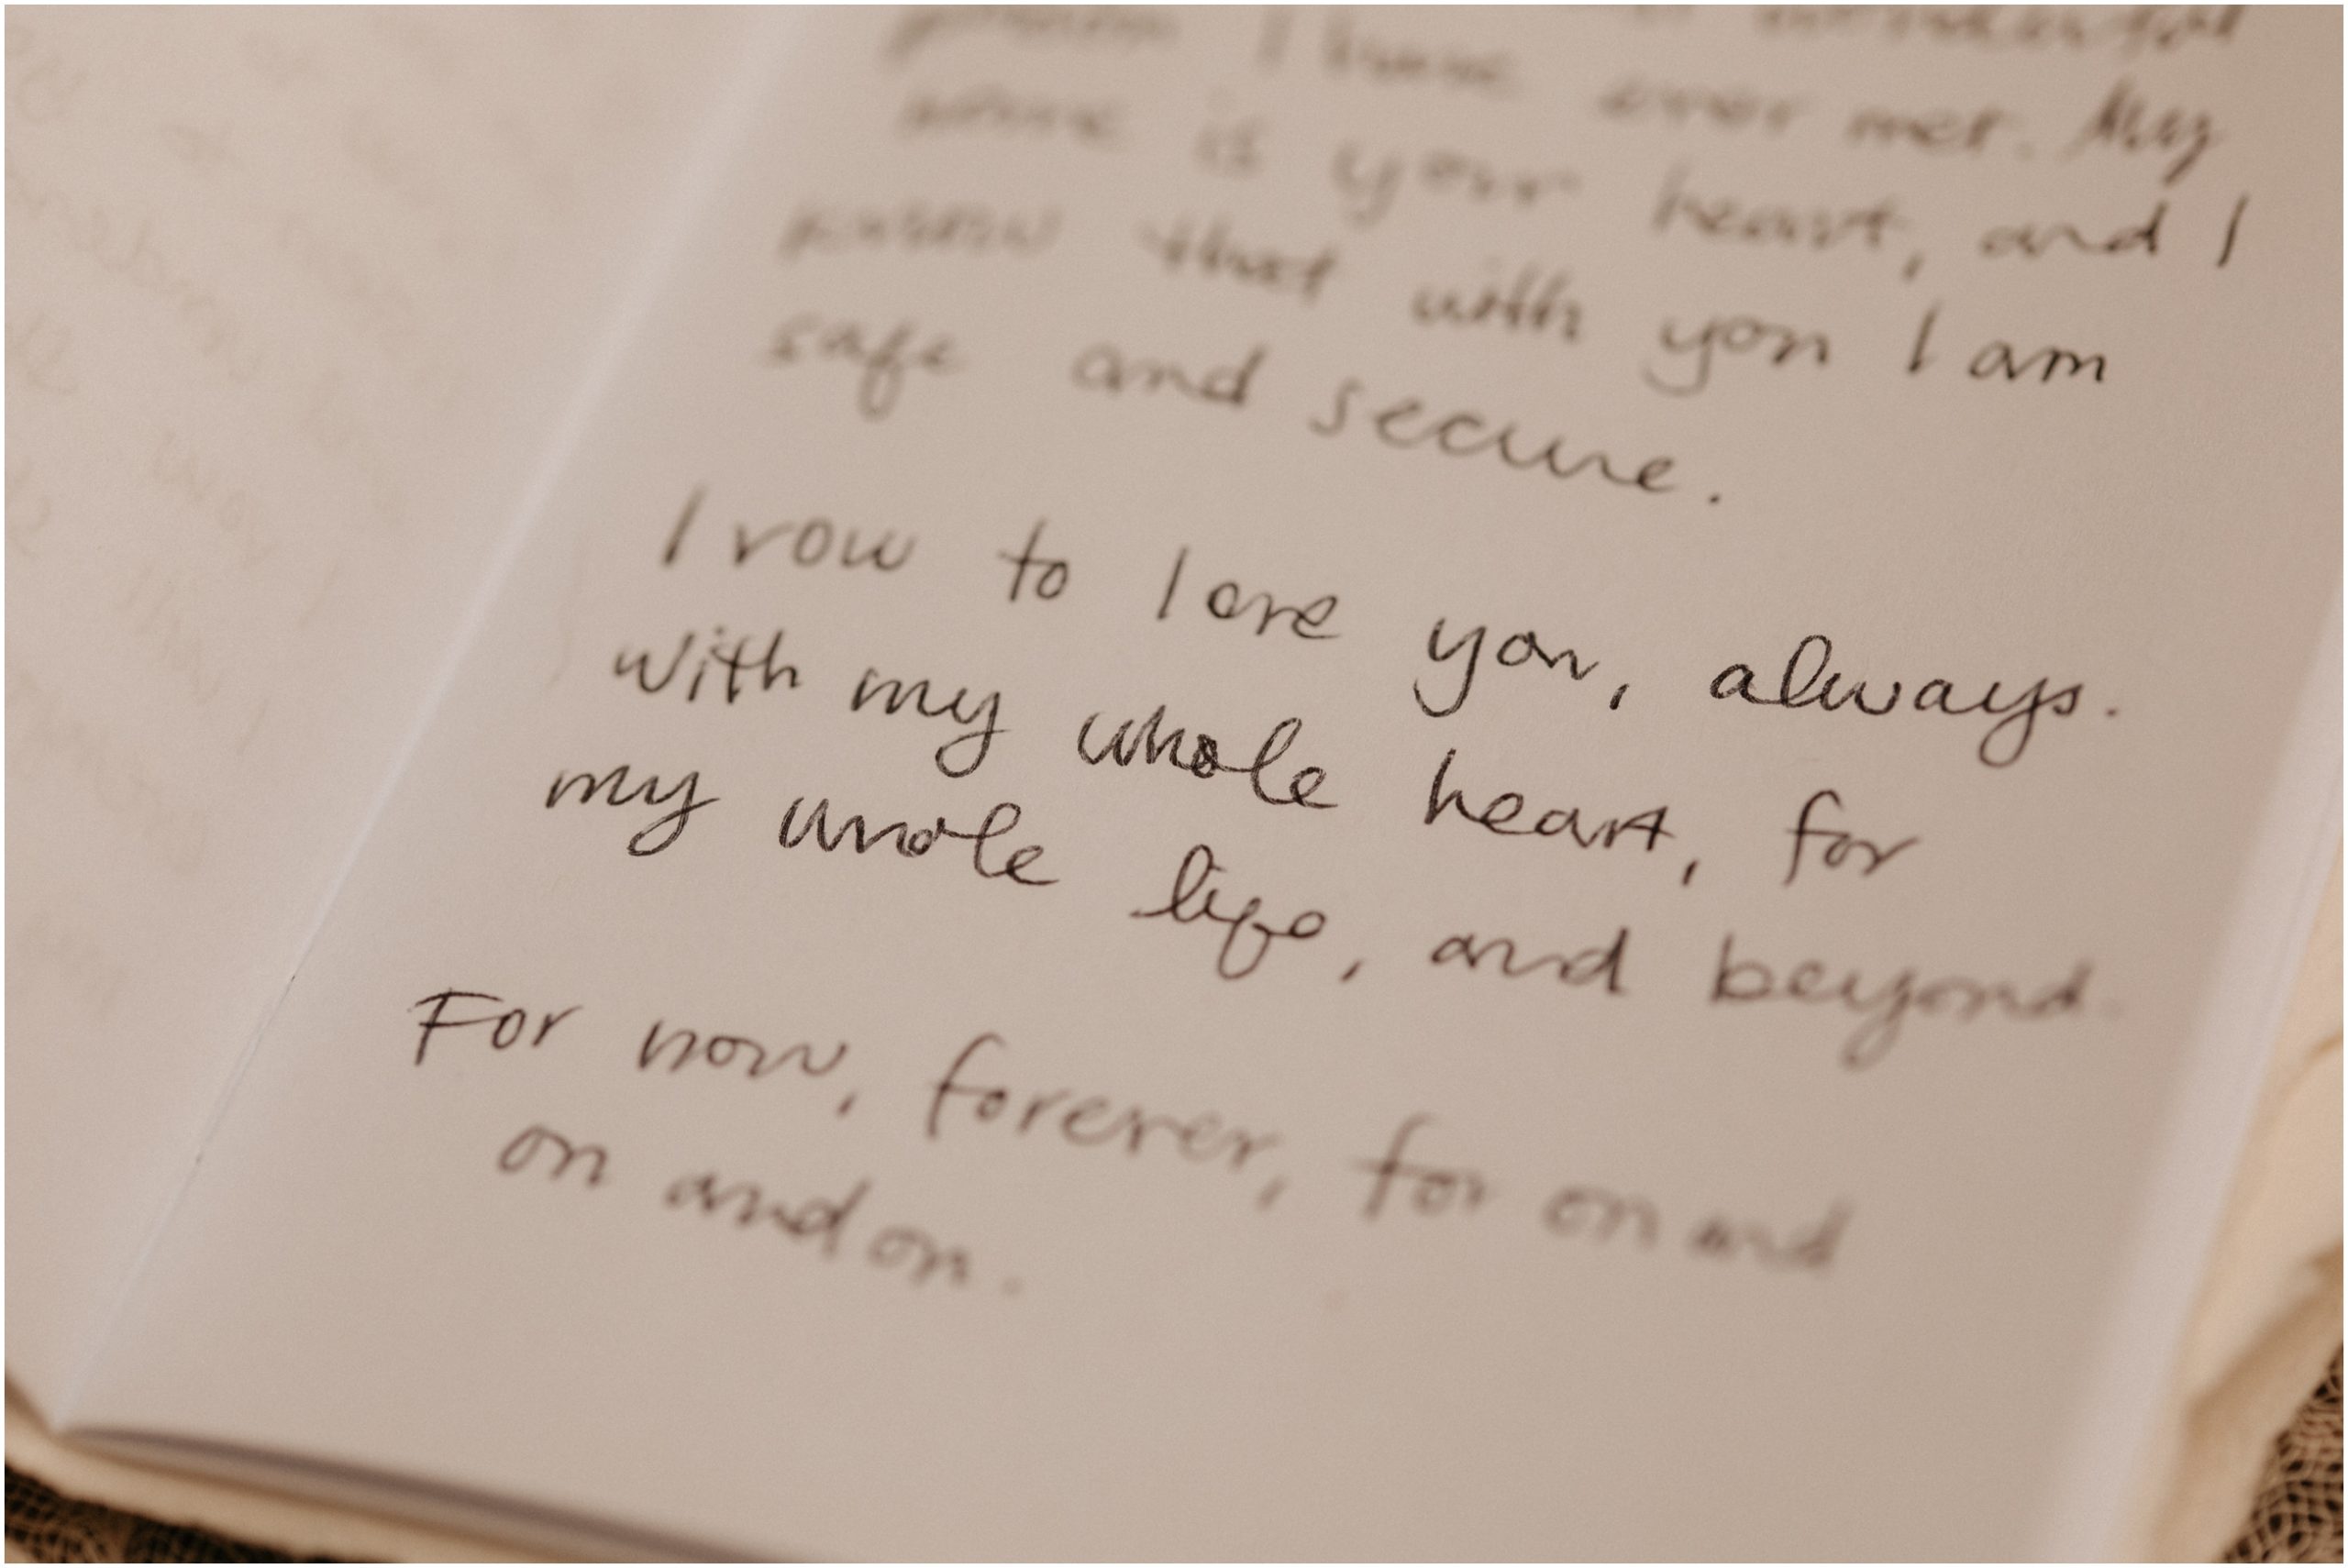 person I have ever met. My
home is your heart, and I
know that with you I am
safe and secure.
I vow to love you, always.
With my whole heart, for
my whole life, and beyond.
For now, forever, for on and
on and on.